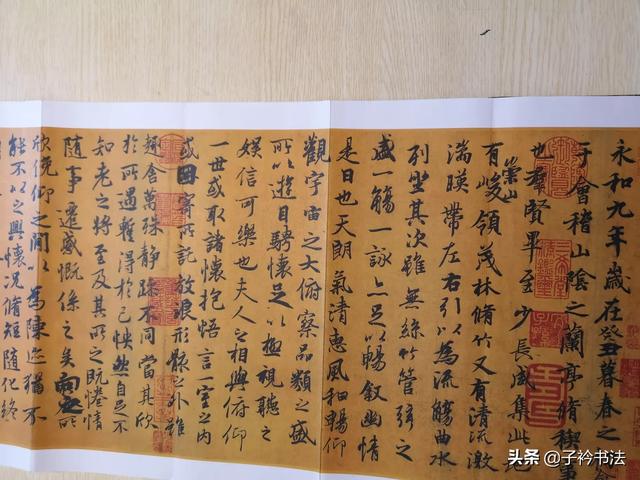 永和九年歲在癸丑暮春之初會
于會稽山陰之蘭亭脩稧事
也羣賢畢至少長咸集此地
有崇山峻領茂林脩竹又有清流激
湍暎帶左右引以為流觴曲水
列坐其次雖無絲竹管弦之
盛一觴一詠亦足以暢敘幽情
是日也天朗氣清惠風和暢仰
觀宇宙之大俯察品類之盛
所以遊目騁懷足以極視聽之
娛信可樂也夫人之相與俯仰
一世或取諸懷抱悟言一室之內
或因寄所託放浪形骸之外雖
趣舍萬殊靜躁不同當其欣
於所遇暫得於己怏然自足不
知老之將至及其所之既惓情
隨事遷感慨係之矣向之所
欣俛仰之間以為陳迹猶不
能不以之興懷況脩短隨化終
头条 @子衿书法